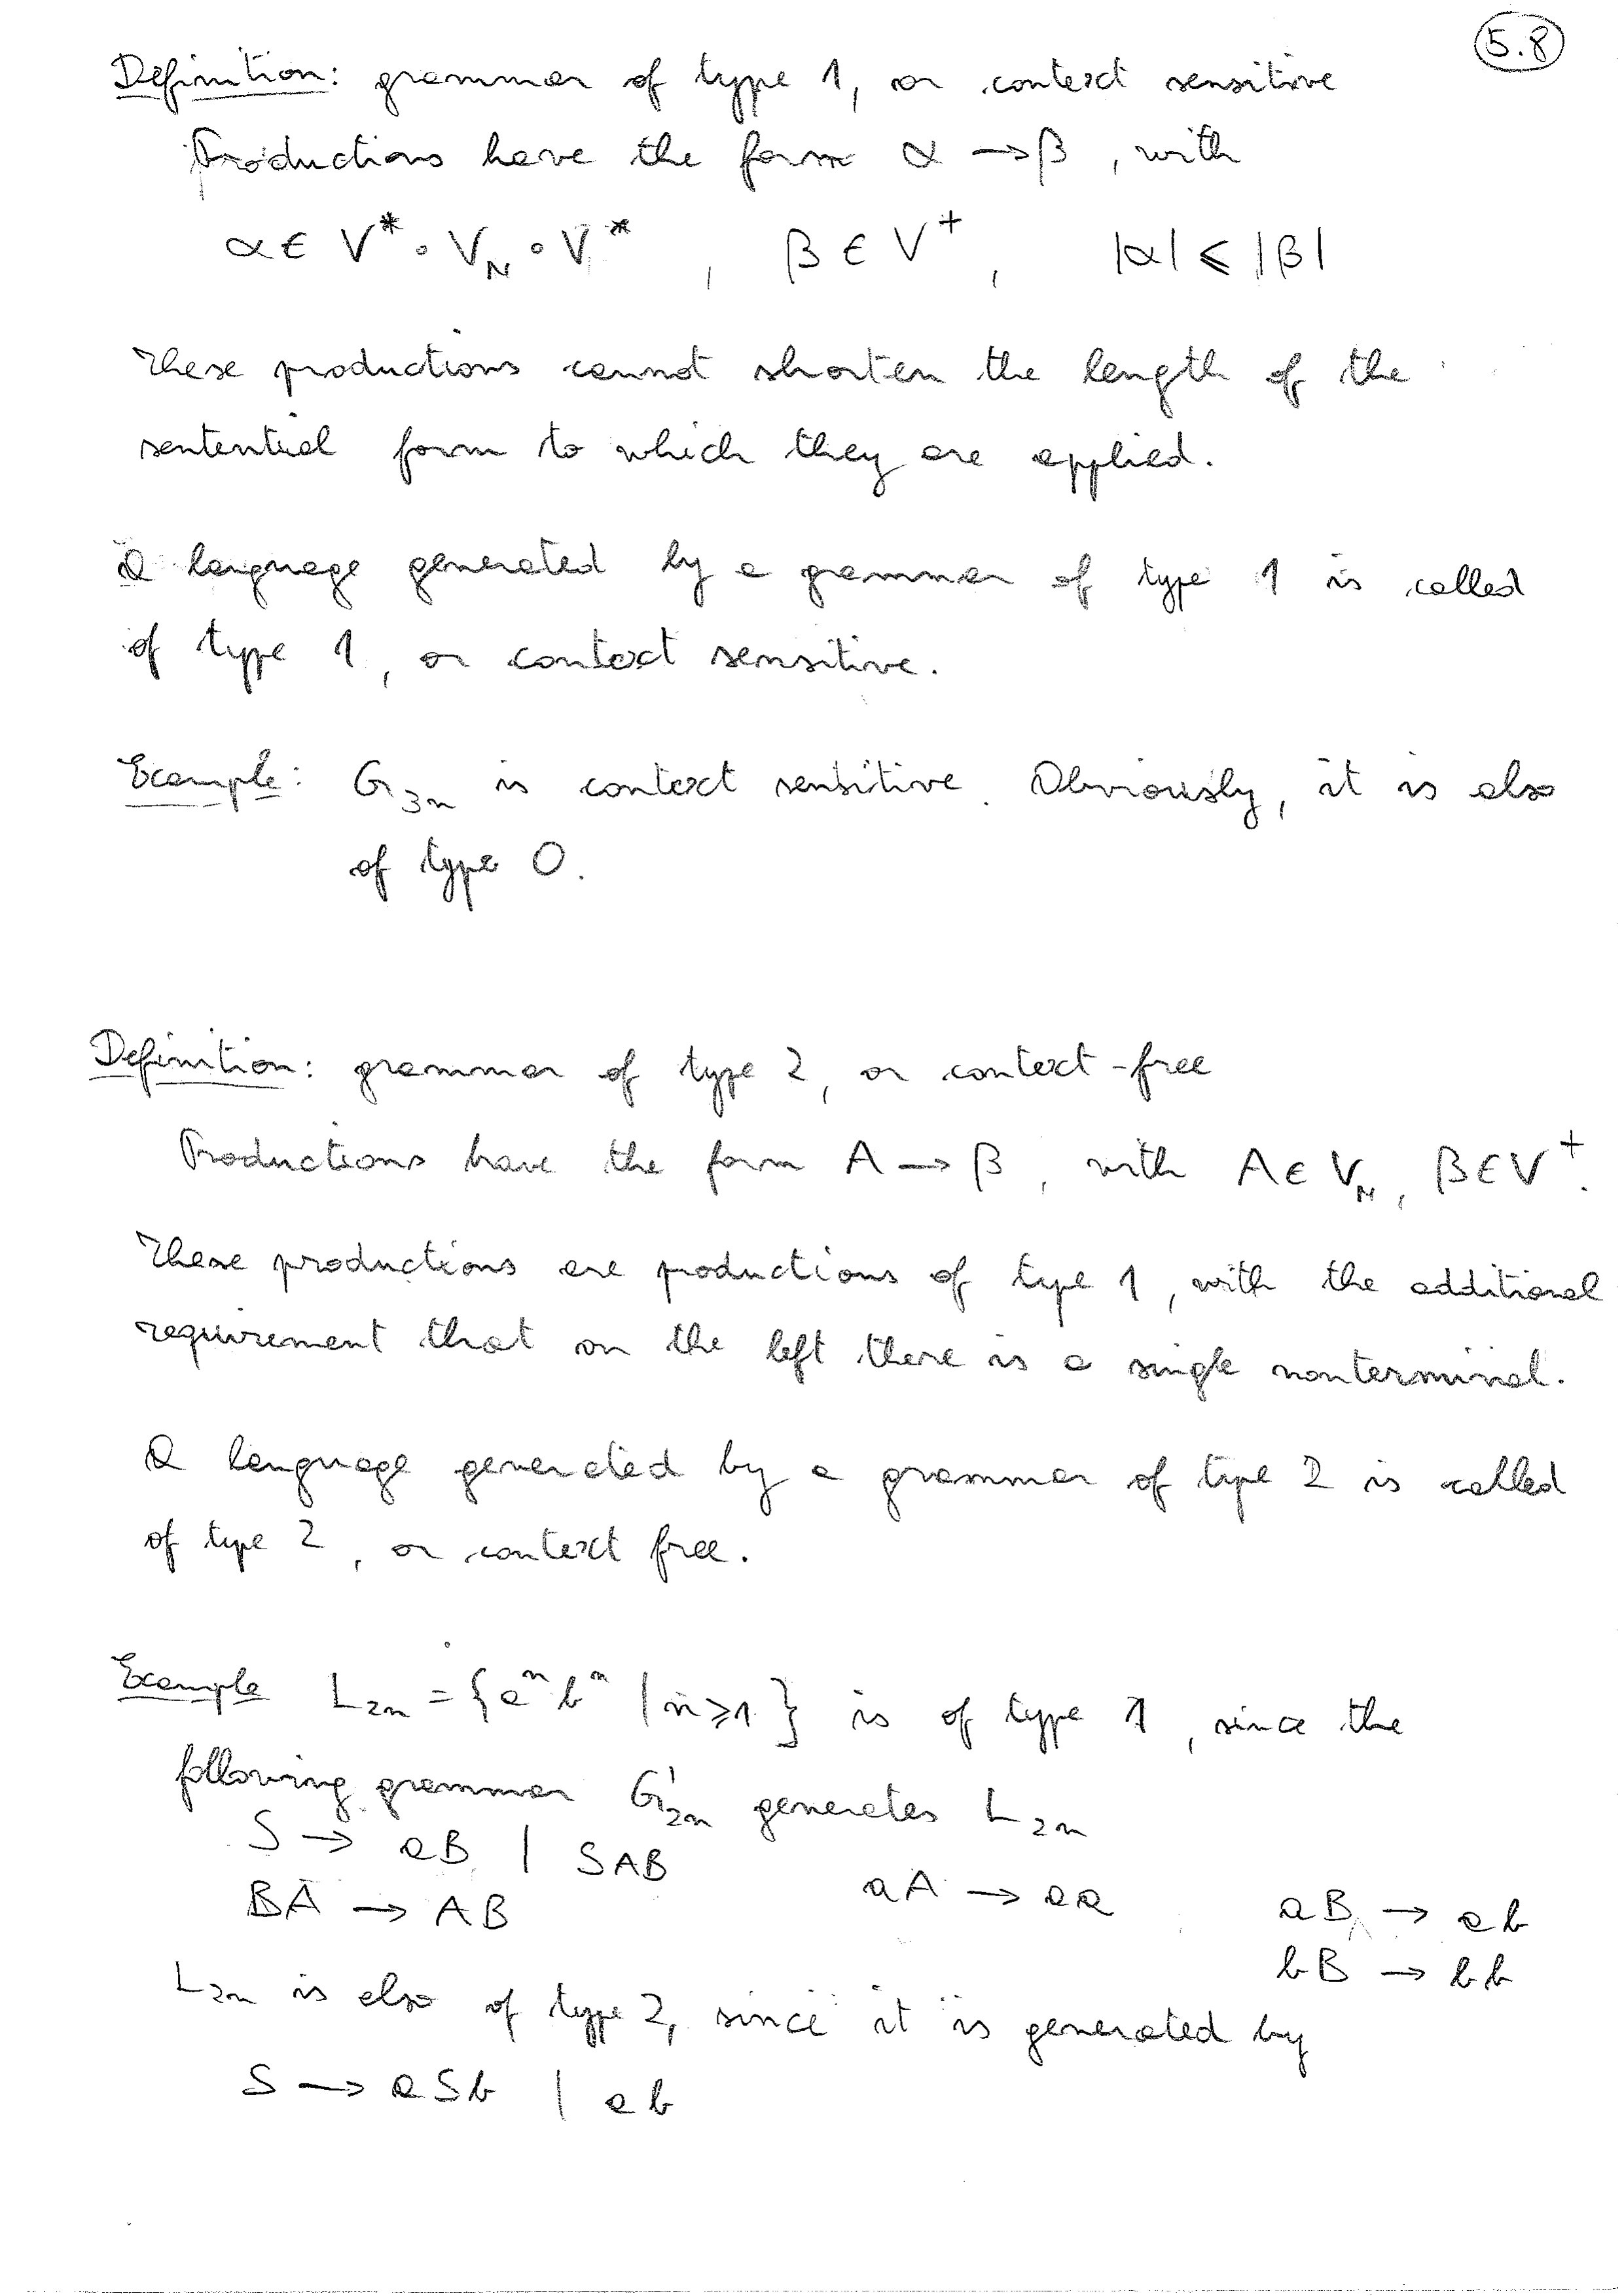 5.8
Definition: grammar of type 1, or context sensitive
Productions have the form α → β, with
α ∈ V* ∘ V_N ∘ V*, β ∈ V⁺, |α| ⩽ |β|
These productions cannot shorten the length of the
sentential form to which they are applied.
A language generated by a grammar of type 1 is called
of type 1, or context sensitive.
Example: G_3n is context sensitive. Obviously, it is also
of type 0.
Definition: grammar of type 2, or context-free
Productions have the form A → β, with A ∈ V_N, β ∈ V⁺.
These productions are productions of type 1, with the additional
requirement that on the left there is a single nonterminal.
A language generated by a grammar of type 2 is called
of type 2, or context free.
Example L_2n = {aⁿbⁿ | n ⩾ 1} is of type 1, since the
following grammar G'_2n generates L_2n
S → aB | SAB
BA → AB aA → aa aB → ab
bB → bb
L_2n is also of type 2, since it is generated by
S → aSb | ab